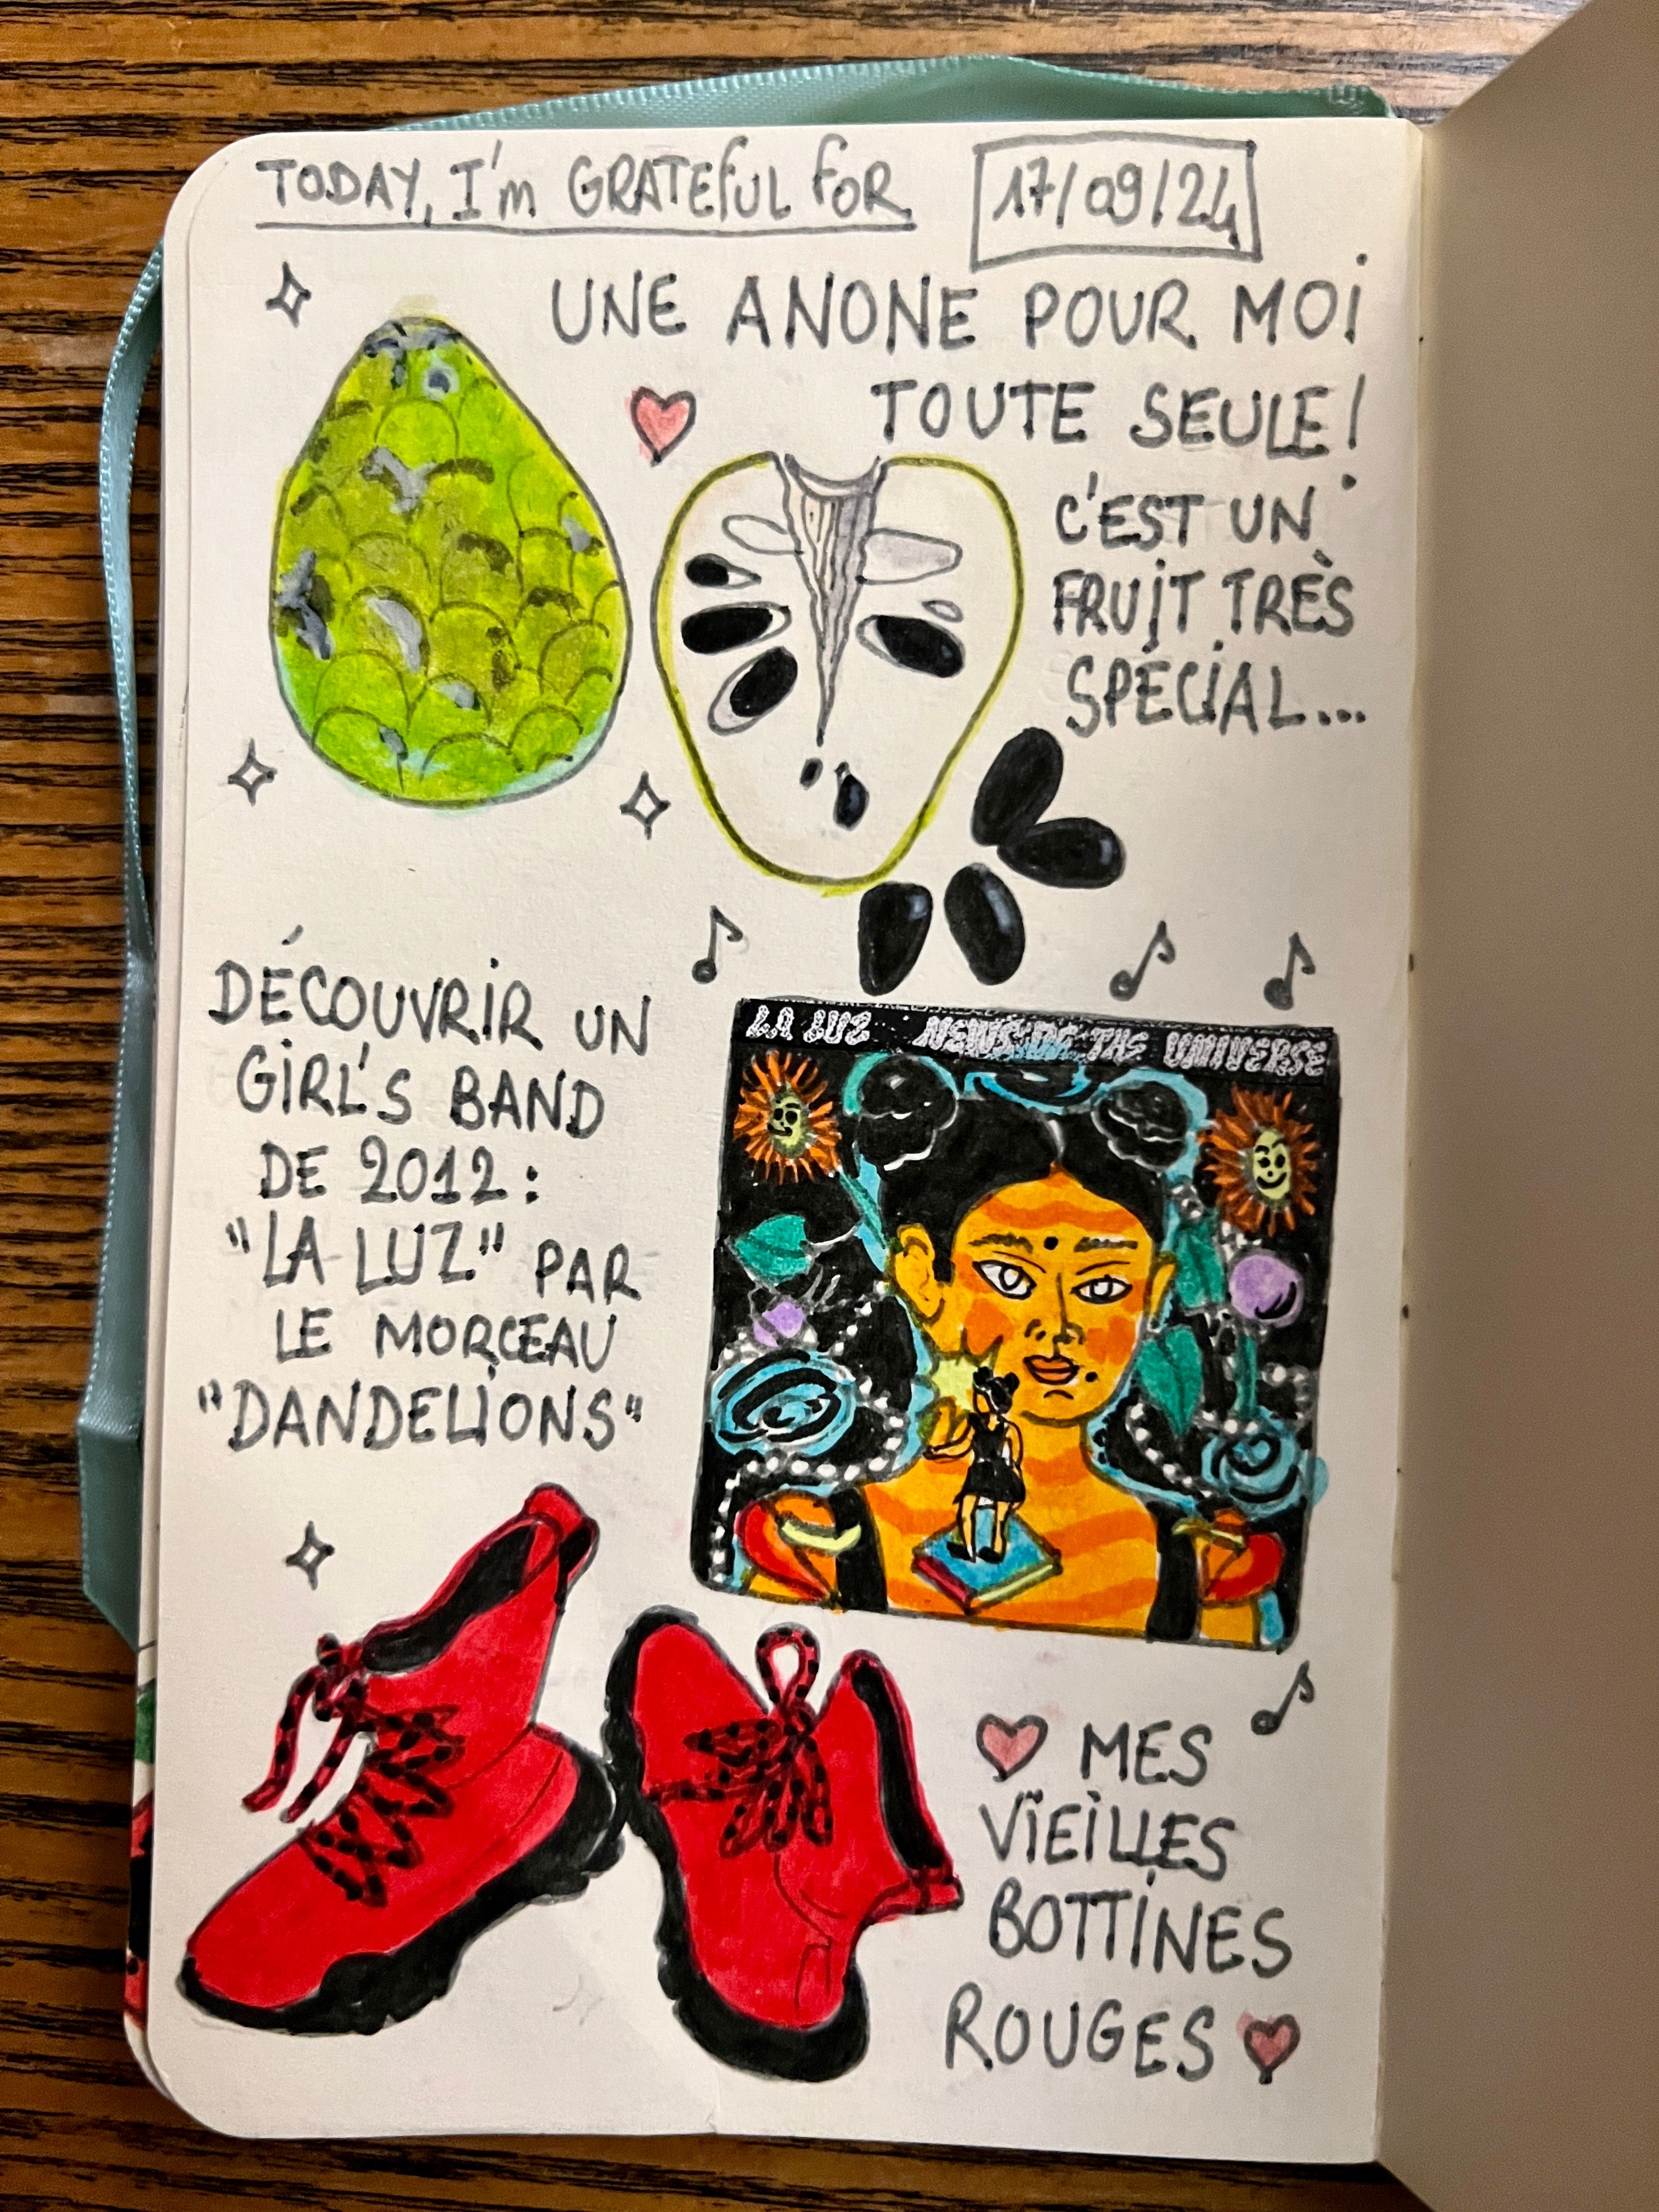 TODAY, I'm GRATEFUL FOR 17/09/24
UNE ANONE POUR MOI
TOUTE SEULE!
C'EST UN
FRUIT TRÈS
SPÉCIAL...
DÉCOUVRIR UN
GIRL'S BAND
DE 2012:
"LA LUZ" PAR
LE MORCEAU
"DANDELIONS"
LA LUZ · NEWS OF THE UNIVERSE
MES
VIEILLES
BOTTINES
ROUGES